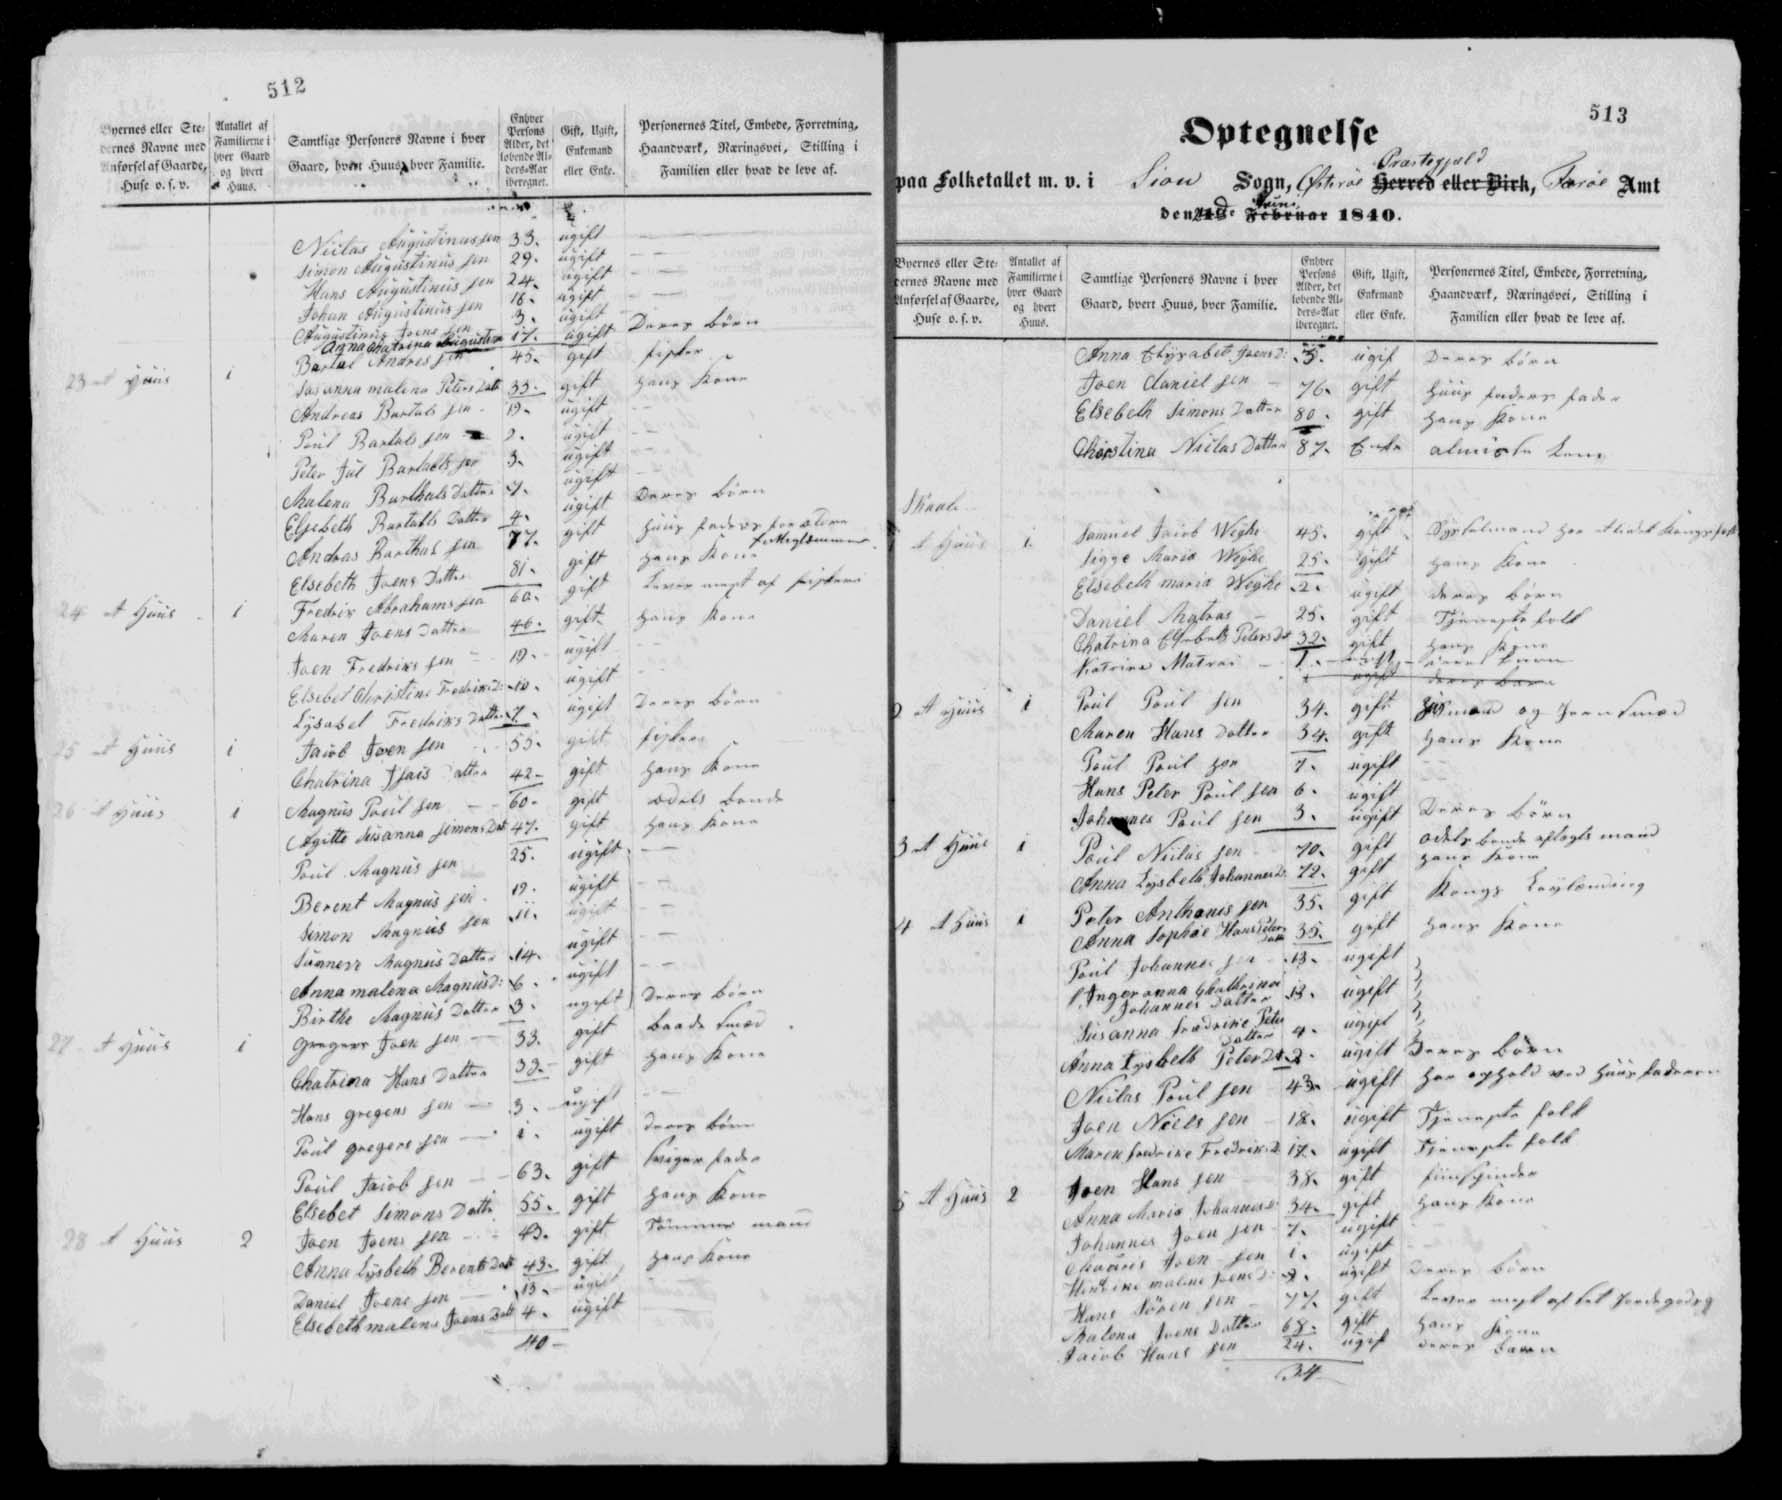 512
Byernes eller Ste-
dernes Navne med
Anførsel af Gaarde,
Huse o. s. v.
Antallet af
Familierne i
hver Gaard
og hvert
Huus.
Samtlige Personers Navne i hver
Gaard, hvert Huus, hver Familie.
Enhver
Persons
Alder, det
løbende Al-
ders-Aar
iberegnet.
Gift, Ugift,
Enkemand
eller Enke.
Personernes Titel, Embede, Forretning,
Haandværk, Næringsvei, Stilling i
Familien eller hvad de leve af.
Niclas Augustinussen 33. ugift
Simon Augustinus sen 29. ugift
Hans Augustinus sen 24. ugift
Johan Augustinus sen 18. ugift
Augustinus Joens sen 3. ugift
Anna Chatrina 17. ugift Deres børn
23 et Huus 1 Bartal Andres sen 45. gift fisker
Susanna malena Peters Datt 33. gift hans Kone
Andreas Bartals sen 19. ugift
Poul Bartals sen 9. ugift
Peter Jul Bartals sen 3. ugift
Malena Barthals Datter 7. ugift
Elsebeth Bartals Datter 4. ugift Deres børn
Andras Barthal sen 77. gift Huus faders forældre
Elsebeth Joens Datter 81. gift hans Kone
24 et Huus 1 Fredrix Abrahams sen 60. gift Lever mest af fiskeri
Maren Joens Datter 46. gift hans Kone
Joen Fredrixs sen 19. ugift
Elsebet Christine Fredrixs D: 10. ugift
Lÿsabel Fredrixs Datter 7. ugift Deres børn
25 et Huus 1 Jacob Joen sen 55. gift fisker
Chatrina Isais Datter 42 gift hans Kone
26 et Huus 1 Magnus Poul sen 60. gift odels bonde
Agitte Susanna Simons Dat 47. gift hans Kone
Poul Magnus sen 25. ugift
Berent Magnus sen 19. ugift
Simon Magnus sen 11. ugift
Sunneva Magnus Datter 14. ugift
Anna malena Magnus D: 6. ugift
Birthe Magnus Datter 3. ugift Deres børn
27 et Huus 1 Gregers Joen sen 33. gift baade smed
Chatrina Hans Datter 33. gift hans Kone
Hans gregers sen 3. ugift
Poul gregers sen 1. ugift deres børn
Poul Jacob sen 63. gift sviger fader
Elsebet Simons Datter 55. gift hans Kone
28 et Huus 2 Joen Joens sen 43. gift Tømmer mand
Anna Lÿsbeth Berents Dat 43. gift hans Kone
Daniel Joens sen 13. ugift
Elsebeth malena Joens Dat 4. ugift
40
513
Optegnelse
paa Folketallet m. v. i Siou Sogn, Østerøe Præstegjæld Herred eller Birk, Færøe Amt
den 1ste Februar Juni 1840.
Byernes eller Ste-
dernes Navne med
Anførsel af Gaarde,
Huse o. s. v.
Antallet af
Familierne i
hver Gaard
og hvert
Huus.
Samtlige Personers Navne i hver
Gaard, hvert Huus, hver Familie.
Enhver
Persons
Alder, det
løbende Al-
ders-Aar
iberegnet.
Gift, Ugift,
Enkemand
eller Enke.
Personernes Titel, Embede, Forretning,
Haandværk, Næringsvei, Stilling i
Familien eller hvad de leve af.
Anna Elÿsabet Joens D: 5. ugift Deres børn
Joen daniel sen 76. gift Huus faders fader
Elsebeth Simons Datter 80. gift hans Kone
Christina Niclas Datter 87. Enke almisse Lem
Skaale
et Huus 1. Samuel Jacob Weÿhe 45. gift Sÿsselmand har
Sigge Maria Weÿhe 25. gift hans Kone
Elsebeth maria Weÿhe 2. ugift deres børn
Daniel Matras 25. gift Tjeneste folk
Chatrina Elsebeth Peters Dat 32. gift hans Kone
Katrina Matras 1. ugift
2 et Huus 1 Poul Poul sen 34. gift
Maren Hans Datter 34. gift hans Kone
Poul Poul sen 7. ugift
Hans Peter Poul sen 6. ugift
Johannes Poul sen 3. ugift Deres børn
3 et Huus 1 Poul Niclas sen 70. gift odels bonde aflagts mand
Anna Lÿsbeth Johannes D: 72. gift hans Kone
4 et Huus 1 Peter Anthonis sen 35. gift Kongs
Anna Sophie Hans Peters Dat 35. gift hans Kone
Poul Johannes sen 13. ugift
Inger anna Chathrina
Johannes Datter 13. ugift
Susanna fredrike Peter
Datter 4. ugift
Anna Lÿsbeth Peter Dat 2. ugift Deres børn
Niclas Poul sen 43. ugift har ophold ved Huus faderen
Joen Niels sen 18. ugift Tjeneste folk
Maren fredrike Fredriks D 17. ugift Tjeneste folk
5 et Huus 2 Joen Hans sen 38. gift
Anna Maria Johannes D: 34. gift hans Kone
Johannes Joen sen 7. ugift
Joen sen 1. ugift
malene Joens D: ugift Deres børn
Hans Sören sen 77. gift Lever mest af lidt Jordegods
Malena Joens Datter 68. gift hans Kone
Jacob Hans sen 24. ugift deres barn
34